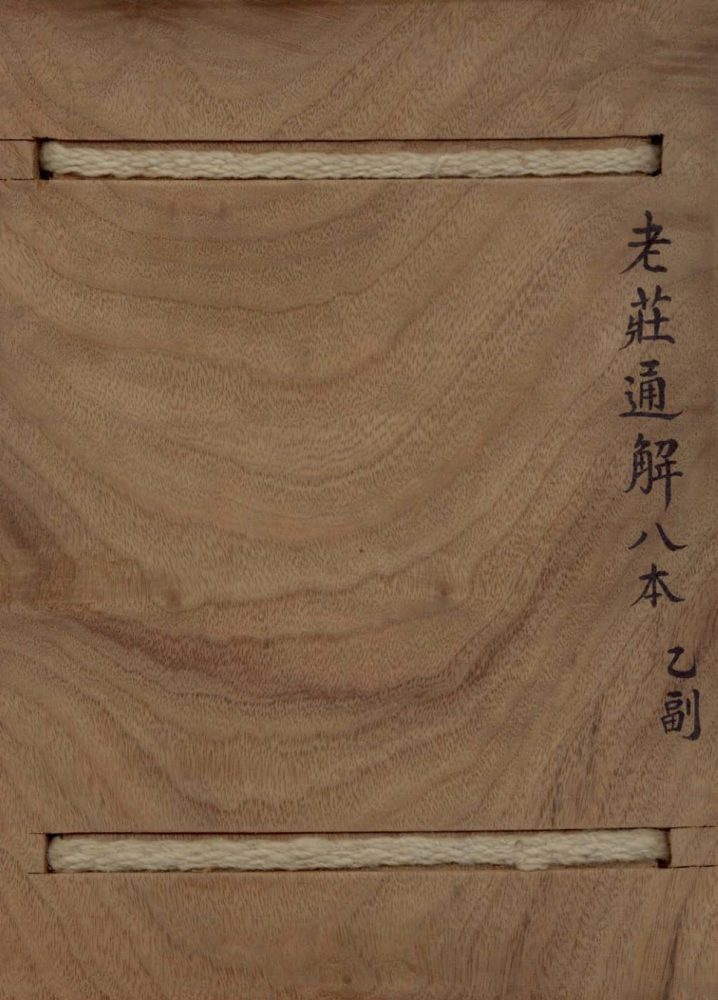 老莊通解八本
乙副